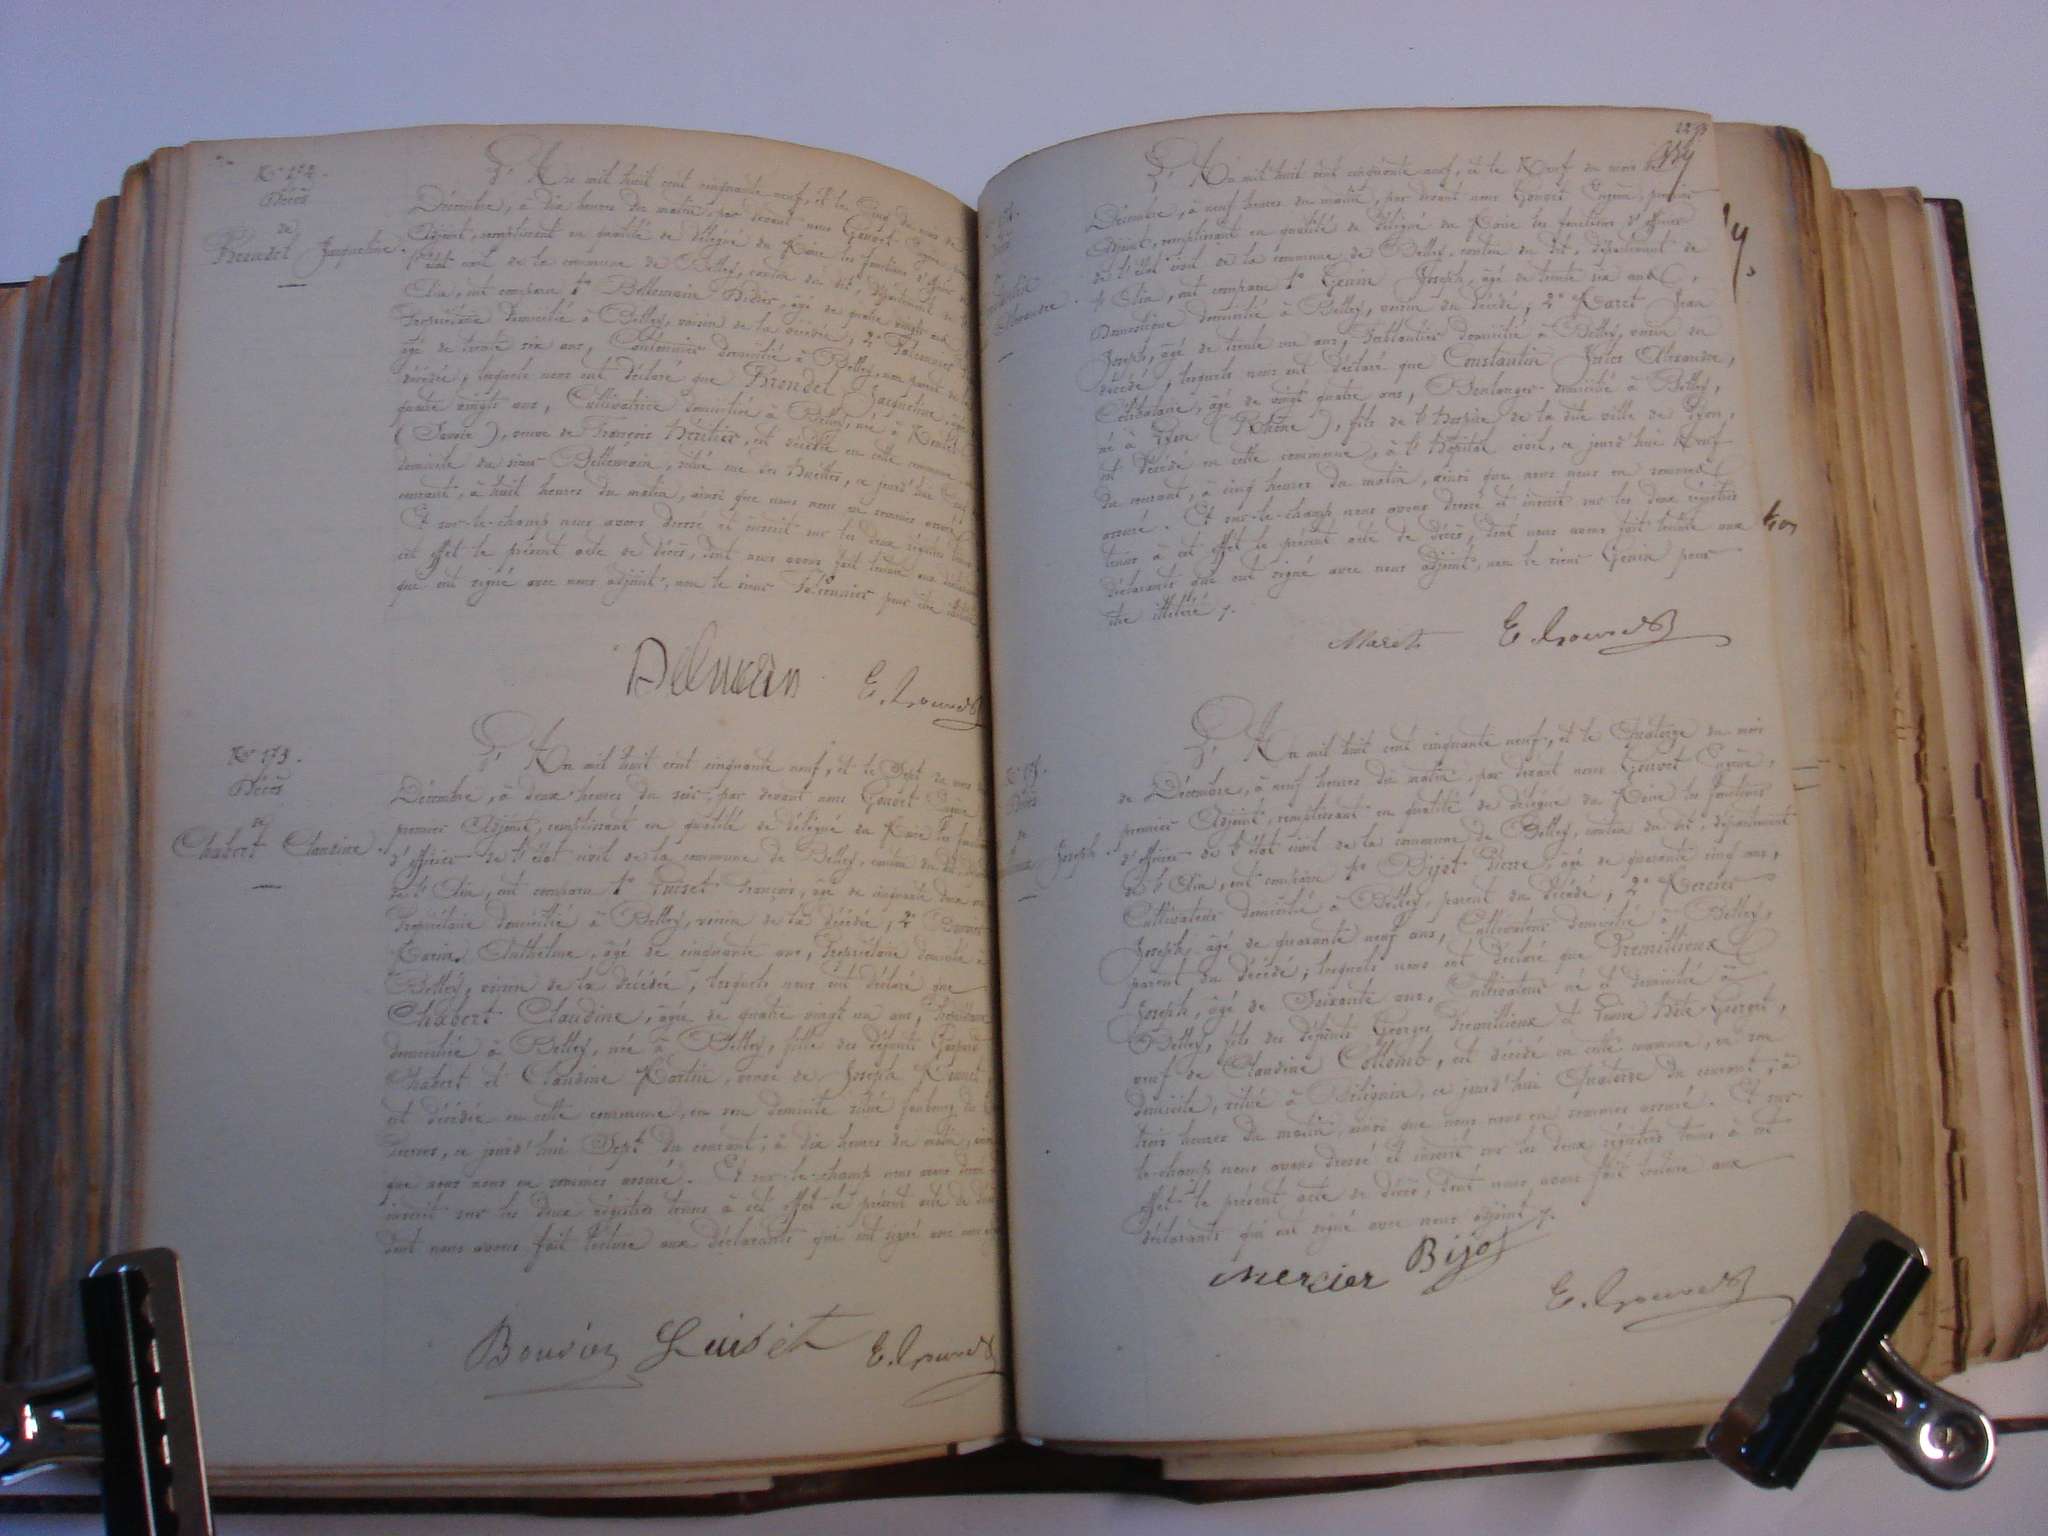 No 172.
Décès
de
Brondel Jacqueline.
L'An mil huit cent cinquante neuf, et le Cinq du mois de
Décembre, à dix heures du matin, par devant nous Gouvet Eugène,
Adjoint, remplissant en qualité de délégué du Maire les fonctions d'officier
de l'état civil de la commune de Belley, canton du dit, département de
l'Ain, ont comparu 1° Bellemain Didier, âgé de quatre vingts ans
Propriétaire domicilié à Belley, voisin de la décédée, 2° Falconnier
âgé de trente six ans, Cantonnier domicilié à Belley, non parent de la
décédée, lesquels nous ont déclaré que Brondel Jacqueline, âgée
quatre vingts ans, Cultivatrice domiciliée à Belley, née à
(Savoie), veuve de François Héritier, est décédée en cette commune
domicile du sieur Bellemain, situé rue des Huettes, ce jourd'hui Cinq
courant, à huit heures du matin, ainsi que nous nous en sommes assuré
Et sur-le-champ nous avons dressé et inscrit sur les deux registres tenus
cet effet le présent acte de décès, dont nous avons fait lecture aux déclarants
que ont signé avec nous adjoint, non le sieur Falconnier pour être illétéré
E. Gouvet
No 173.
Décès
de
Chabert Claudine.
L'An mil huit cent cinquante neuf, et le Sept du mois de
Décembre, à deux heures du soir, par devant nous Gouvet Eugène
premier Adjoint, remplissant en qualité de délégué du Maire les fonctions
d'officier de l'état civil de la commune de Belley, canton du dit,
de l'Ain, ont comparu 1° Luiset François, âgé de cinquante deux ans
Propriétaire domicilié à Belley, voisin de la décédée, 2° Bouvier
Marin Anthelme, âgé de cinquante ans, Propriétaire domicilié à
Belley, voisin de la décédée, lesquels nous ont déclaré que
Chabert Claudine, âgée de quatre vingt un ans,
domiciliée à Belley, née à Belley, fille des défunts Gaspard
Chabert et Claudine Martin, veuve de Joseph
est décédée en cette commune, en son domicile situé faubourg du
ce jourd'hui Sept du courant, à dix heures du matin, ainsi
que nous nous en sommes assuré. Et sur-le-champ nous avons dressé
inscrit sur les deux registres tenus à cet effet le présent acte de décès
dont nous avons fait lecture aux déclarants qui ont signé avec nous
Bouvier Luiset E. Gouvet
Constantin
Alexandre.
L'An mil huit cent cinquante neuf, et le Neuf du mois de
Décembre, à neuf heures du matin, par devant nous Gouvet Eugène, premier
Adjoint, remplissant en qualité de délégué du Maire les fonctions d'officier
de l'état civil de la commune de Belley, canton du dit, département de
l'Ain, ont comparu 1° Genin Joseph, âgé de trente six ans,
Domestique domicilié à Belley, voisin du décédé; 2° Maret Jean
Joseph, âgé de trente un ans, Ferblantier domicilié à Belley, voisin du
décédé; lesquels nous ont déclaré que Constantin Jules Alexandre,
Célibataire, âgé de vingt quatre ans, Boulanger domicilié à Belley,
né à Lyon (Rhône), fils de l'Hospice de la dite ville de Lyon,
est décédé en cette commune, à l'Hôpital civil, ce jourd'hui Neuf
du courant, à cinq heures du matin, ainsi que nous nous en sommes
assuré. Et sur-le-champ nous avons dressé et inscrit sur les deux registres
tenus à cet effet le présent acte de décès, dont nous avons fait lecture aux
déclarants que ont signé avec nous adjoint, non le sieur Genin pour
être illétéré.
Maret E. Gouvet
Décès
de
Joseph.
L'An mil huit cent cinquante neuf, et le Quatorze du mois
de Décembre, à neuf heures du matin, par devant nous Gouvet Eugène,
premier Adjoint, remplissant en qualité de délégué du Maire les fonctions
d'officier de l'état civil de la commune de Belley, canton du dit, département
de l'Ain, ont comparu 1° Bijot Pierre, âgé de quarante cinq ans,
Cultivateur domicilié à Belley, parent du décédé; 2° Mercier
Joseph, âgé de quarante neuf ans, Cultivateur domicilié à Belley,
parent du décédé; lesquels nous ont déclaré que Tremillieux
Joseph, âgé de Soixante ans, Cultivateur né et domicilié à
Belley, fils des défunts Georges Tremillieux et Georget,
veuf de Claudine Collomb, est décédé en cette commune, en son
domicile, situé à Billignin, ce jourd'hui Quatorze du courant, à
trois heures du matin, ainsi que nous nous en sommes assuré. Et sur-
le-champ nous avons dressé et inscrit sur les deux registres tenus à cet
effet le présent acte de décès, dont nous avons fait lecture aux
déclarants qui ont signé avec nous adjoint.
Mercier Bijot
E. Gouvet